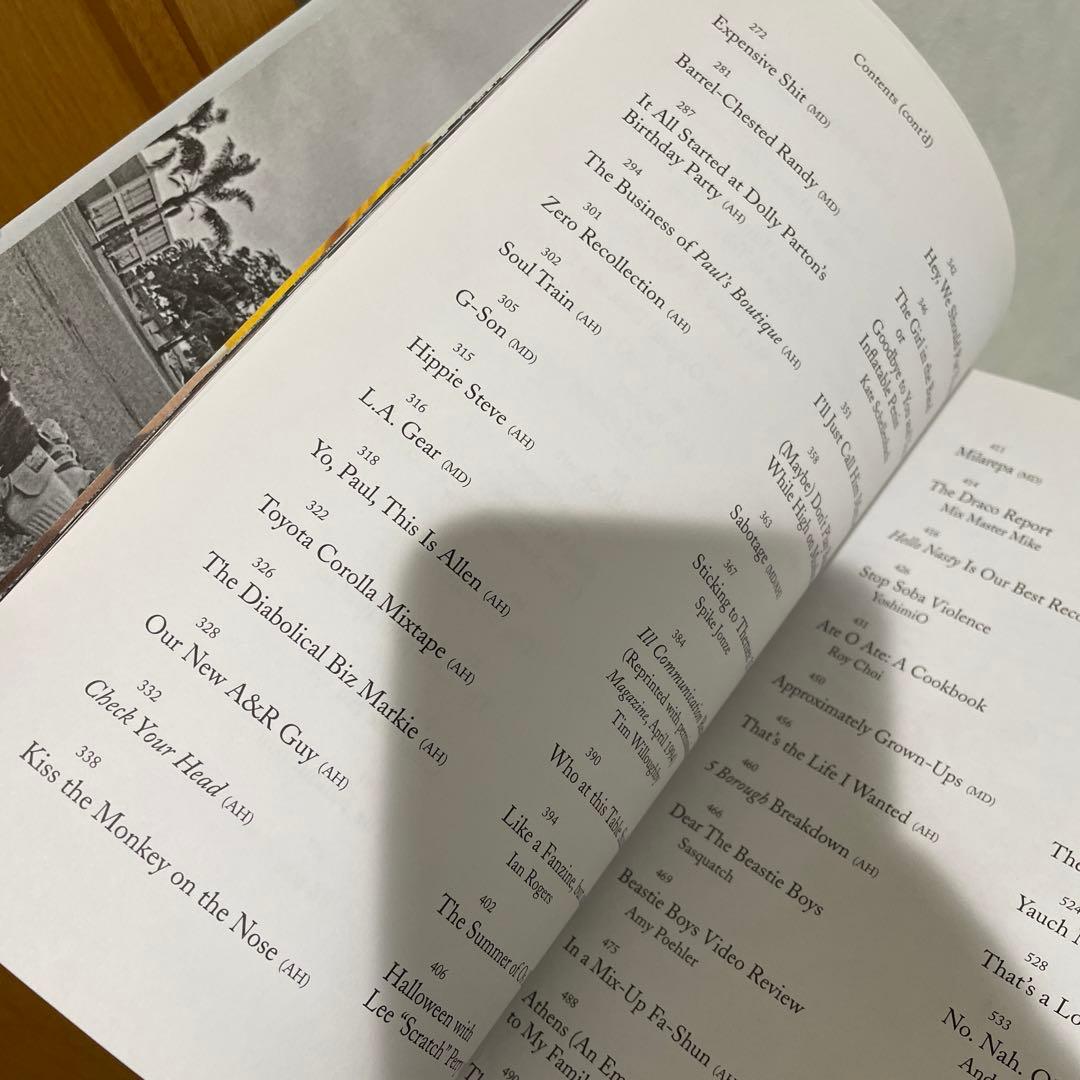 Contents (cont'd)
272
Expensive Shit (MD)
281
Barrel-Chested Randy (MD)
287
It All Started at Dolly Parton's
Birthday Party (AH)
294
The Business of Paul's Boutique (AH)
301
Zero Recollection (AH)
302
Soul Train (AH)
305
G-Son (MD)
315
Hippie Steve (AH)
316
L.A. Gear (MD)
318
Yo, Paul, This Is Allen (AH)
322
Toyota Corolla Mixtape (AH)
326
The Diabolical Biz Markie (AH)
328
Our New A&R Guy (AH)
332
Check Your Head (AH)
338
Kiss the Monkey on the Nose (AH)
342
Hey, We Should
346
The Girl in the Band
or
Goodbye to You and
Inflatable Penis
Kate Schellenbach
351
I'll Just Call Him
358
(Maybe) Don't
While High on
363
Sabotage (MD/AH)
367
Sticking to
Spike Jonze
384
Ill Communication
(Reprinted with
Magazine, April 1994)
Tim Willoughby
390
Who at this Table
394
Like a Fanzine,
Ian Rogers
402
The Summer of
406
Halloween with
Lee "Scratch"
Milarepa (MD)
424
The Draco Report
Mix Master Mike
Hello Nasty Is Our Best
Stop Soba Violence
YoshimiO
431
Are O Ate: A Cookbook
Roy Choi
450
Approximately Grown-Ups (MD)
456
That's the Life I Wanted (AH)
460
5 Borough Breakdown (AH)
466
Dear The Beastie Boys
Sasquatch
469
Beastie Boys Video Review
Amy Poehler
475
In a Mix-Up Fa-Shun
488
Athens (An
to My
490
524
Yauch
528
That's a
533
No. Nah.